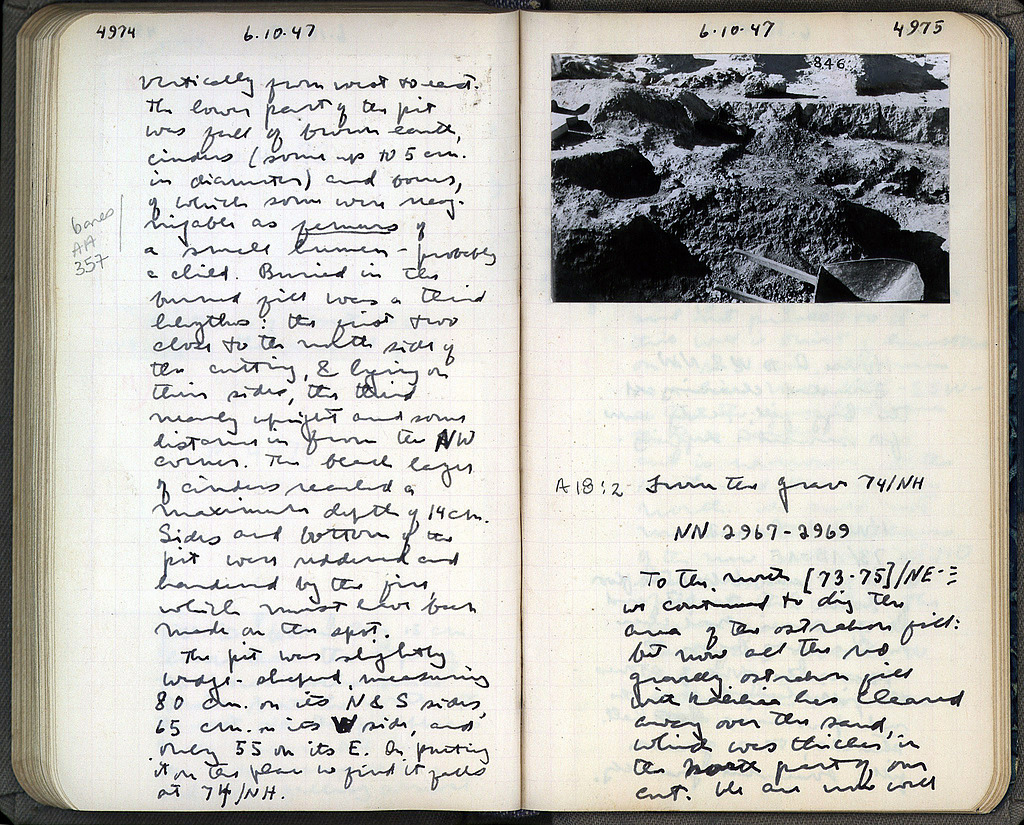 4974
6·10·47
vertically from west to east.
The lower part of the pit
was full of brown earth,
cinders (some up to 5 cm.
in diameter) and bones,
of which some were recog-
nizable as femurs of
a small human - probably
a child. Buried in the
burned fill was a third
lekythos: the first two
close to the north side of
the cutting, & lying on
their sides, the third
nearly upright and some
distance in from the NW
corner. The black layer
of cinders reached a
maximum depth of 14 cm.
Sides and bottom of the
pit were reddened and
hardened by the fire,
which must have been
made on the spot.
The pit was slightly
wedge-shaped, measuring
80 cm. on its N & S sides,
65 cm. on its W side, and
only 55 on its E. On putting
it on the plan we find it falls
at 74/NH.
bones
AA
357
6·10·47
4975
846
A18:2 From the grave 74/NH
NN 2967-2969
To the north [73-75]/NE-
we continued to dig the
area of the ostrakon fill:
but now all the
ostrakon fill
has cleared
away over the sand,
which was thicker in
the north part of our
cut. We are now well